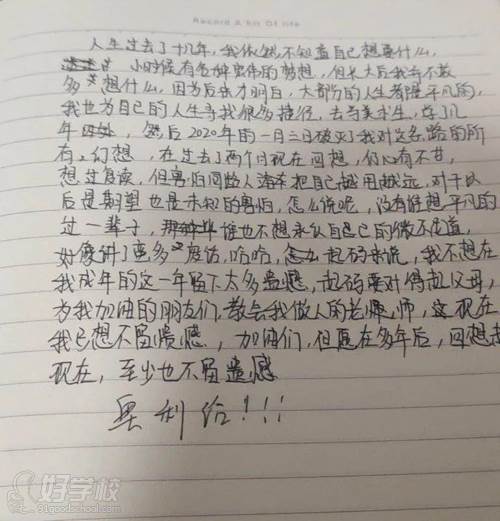 Record a bit Of life
人生过去了十几年，我依然不知道自己想要什么，
小时候有各种宏伟的梦想，但长大后我却不敢
多想什么，因为后来才明白，大部分的人生都是平凡的，
我也为自己的人生寻找很多捷径，去当美术生，学了几
年，然后2020年的一月三日破灭了我对这条路的所
有幻想，在过去了两个月现在回想，仍心有不甘，
想过复读，但害怕同龄人渐渐把自己越甩越远，对于以
后是期望也是未知的害怕，怎么说呢，没有谁想平凡的
过一辈子，谁也不想承认自己的微不足道，
好像讲了更多废话，哈哈，起码来说，我不想在
我成年的这一年留下太多遗憾，起码要对得起父母，
为我加油的朋友们，教会我做人的老师，这现在
我已想不留遗憾，加油们，但愿在多年后，回想起
现在，至少也不留遗憾
奥利给！！！
好学校
91goodschool.com